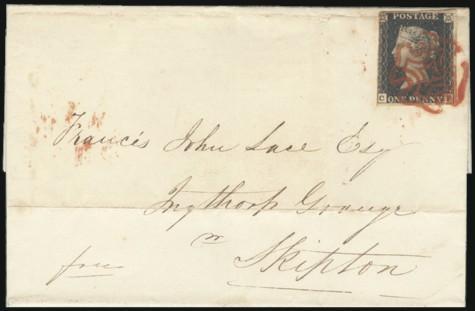 POSTAGE
ONE PENNY
Francis John Lace Esq
Ingthorp Grange
nr
Skipton
free